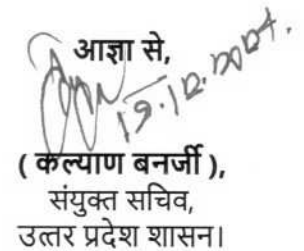 आज्ञा से,
19.12.2024.
( कल्याण बनर्जी ),
संयुक्त सचिव,
उत्तर प्रदेश शासन।